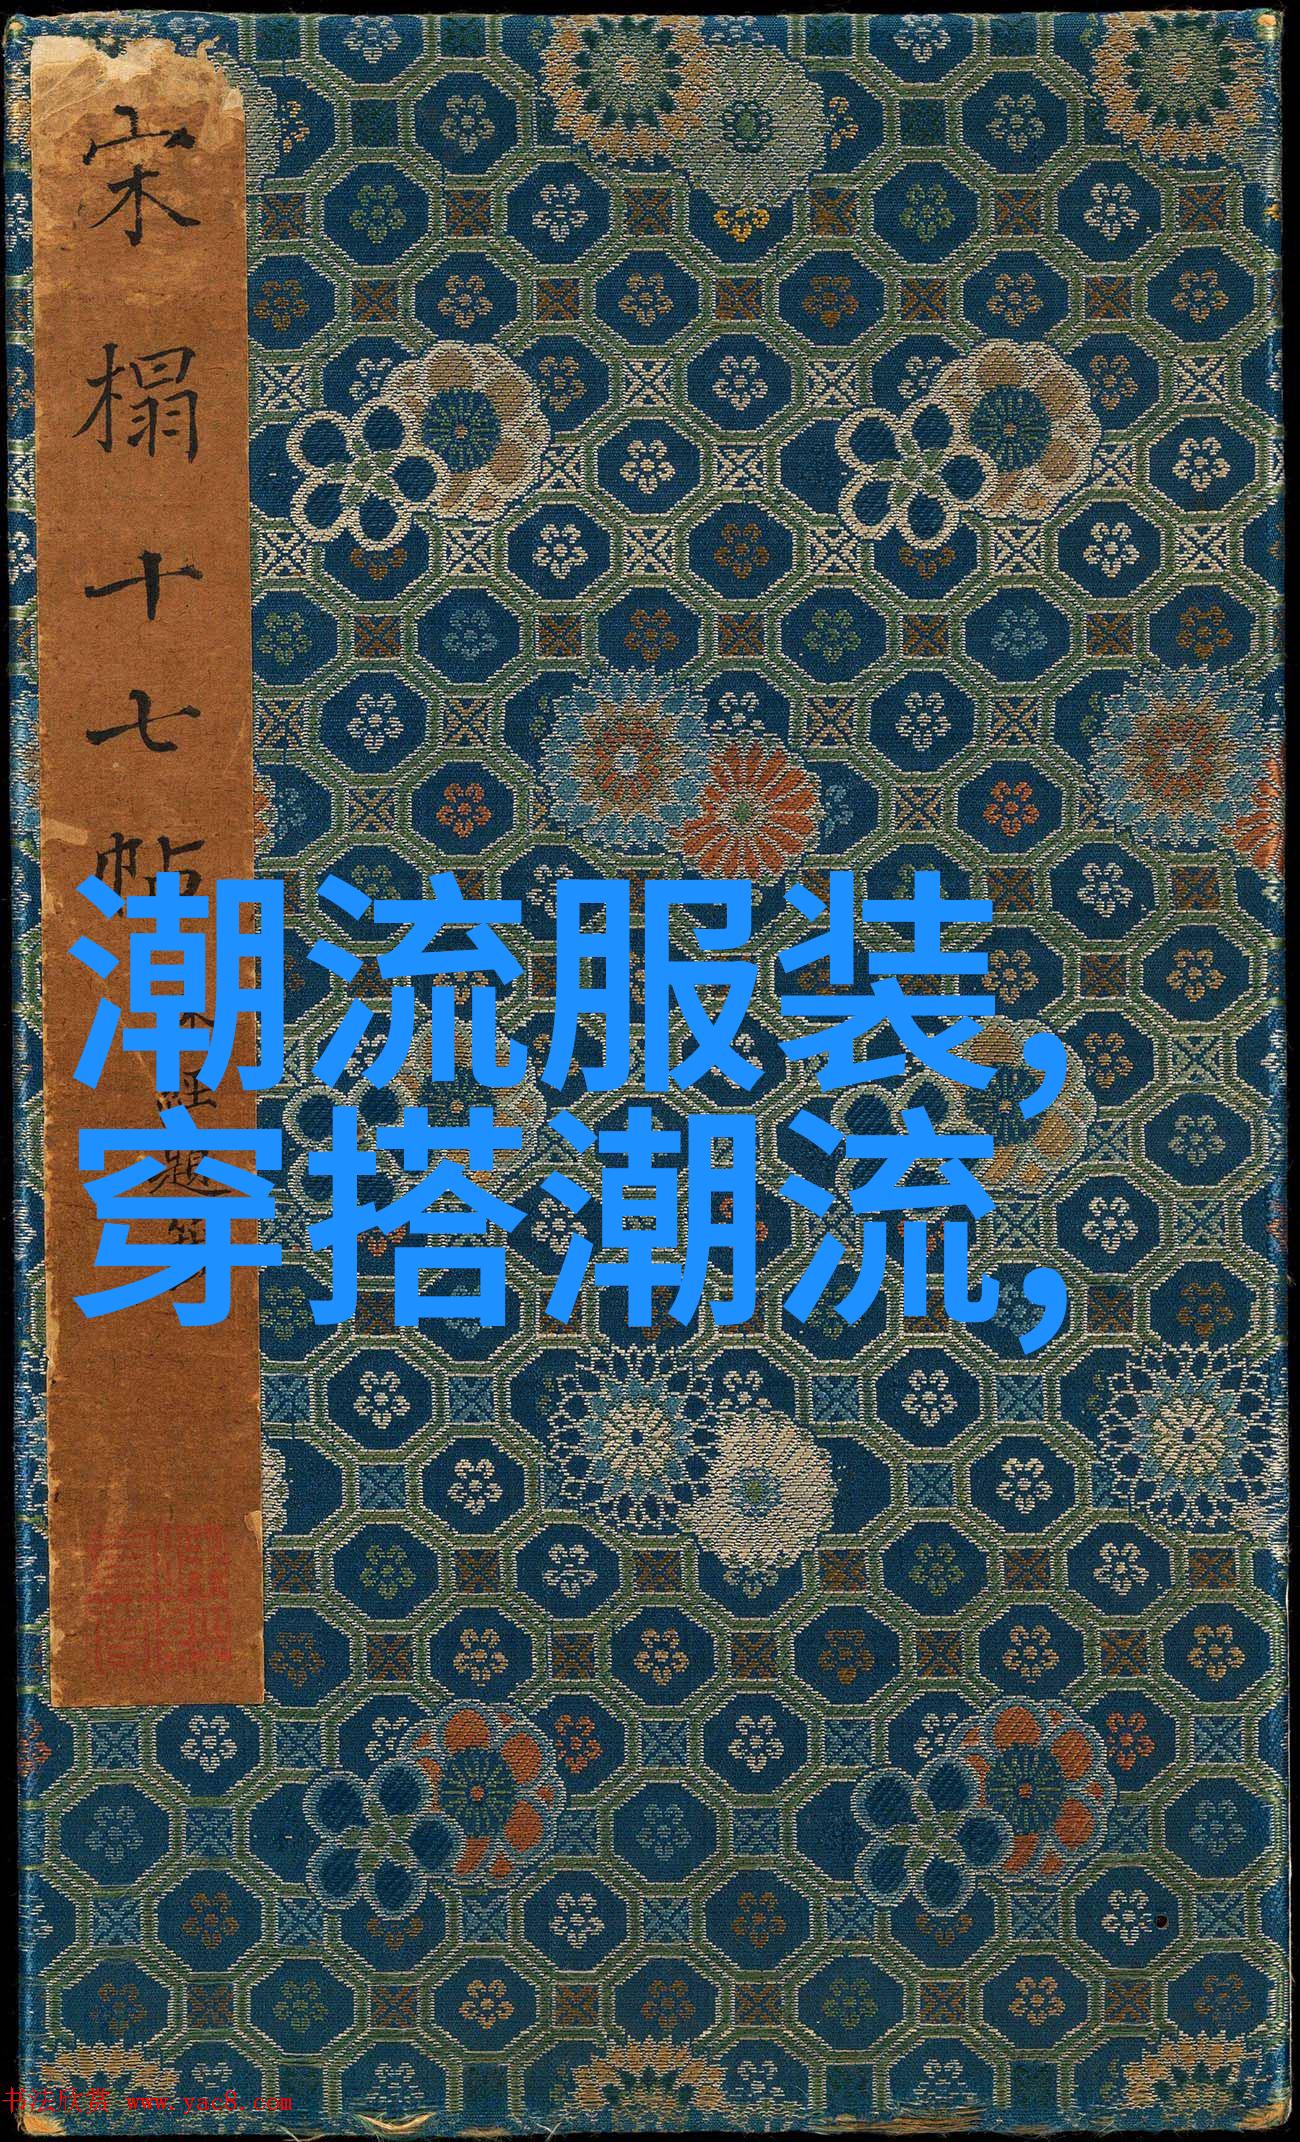 宋榻十七帖
潮流服装,
穿搭潮流,
书法欣赏 www.yac8.com